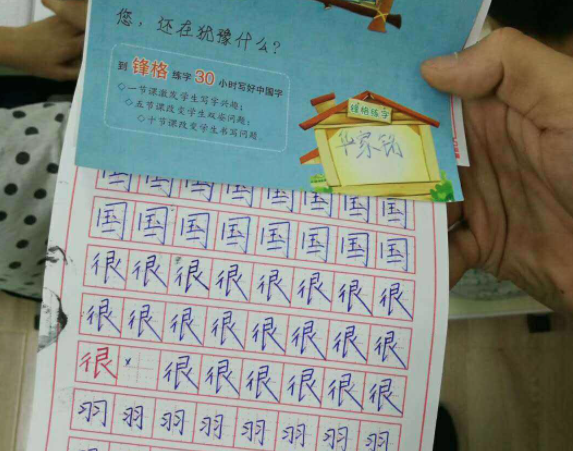 您，还在犹豫什么？
到 锋格 练字 30 小时写好中国字
◇一节课激发学生写字兴趣；
◇五节课改变学生双姿问题；
◇十节课改变学生书写问题。
锋格练字
华家铭
国 国 国 国 国 国 国 国
国 国 国 国 国 国 国 国
很 很 很 很 很 很 很 很
很 很 很 很 很 很 很 很
很 很 很 很 很 很 很
羽 羽 羽 羽 羽 羽 羽 羽